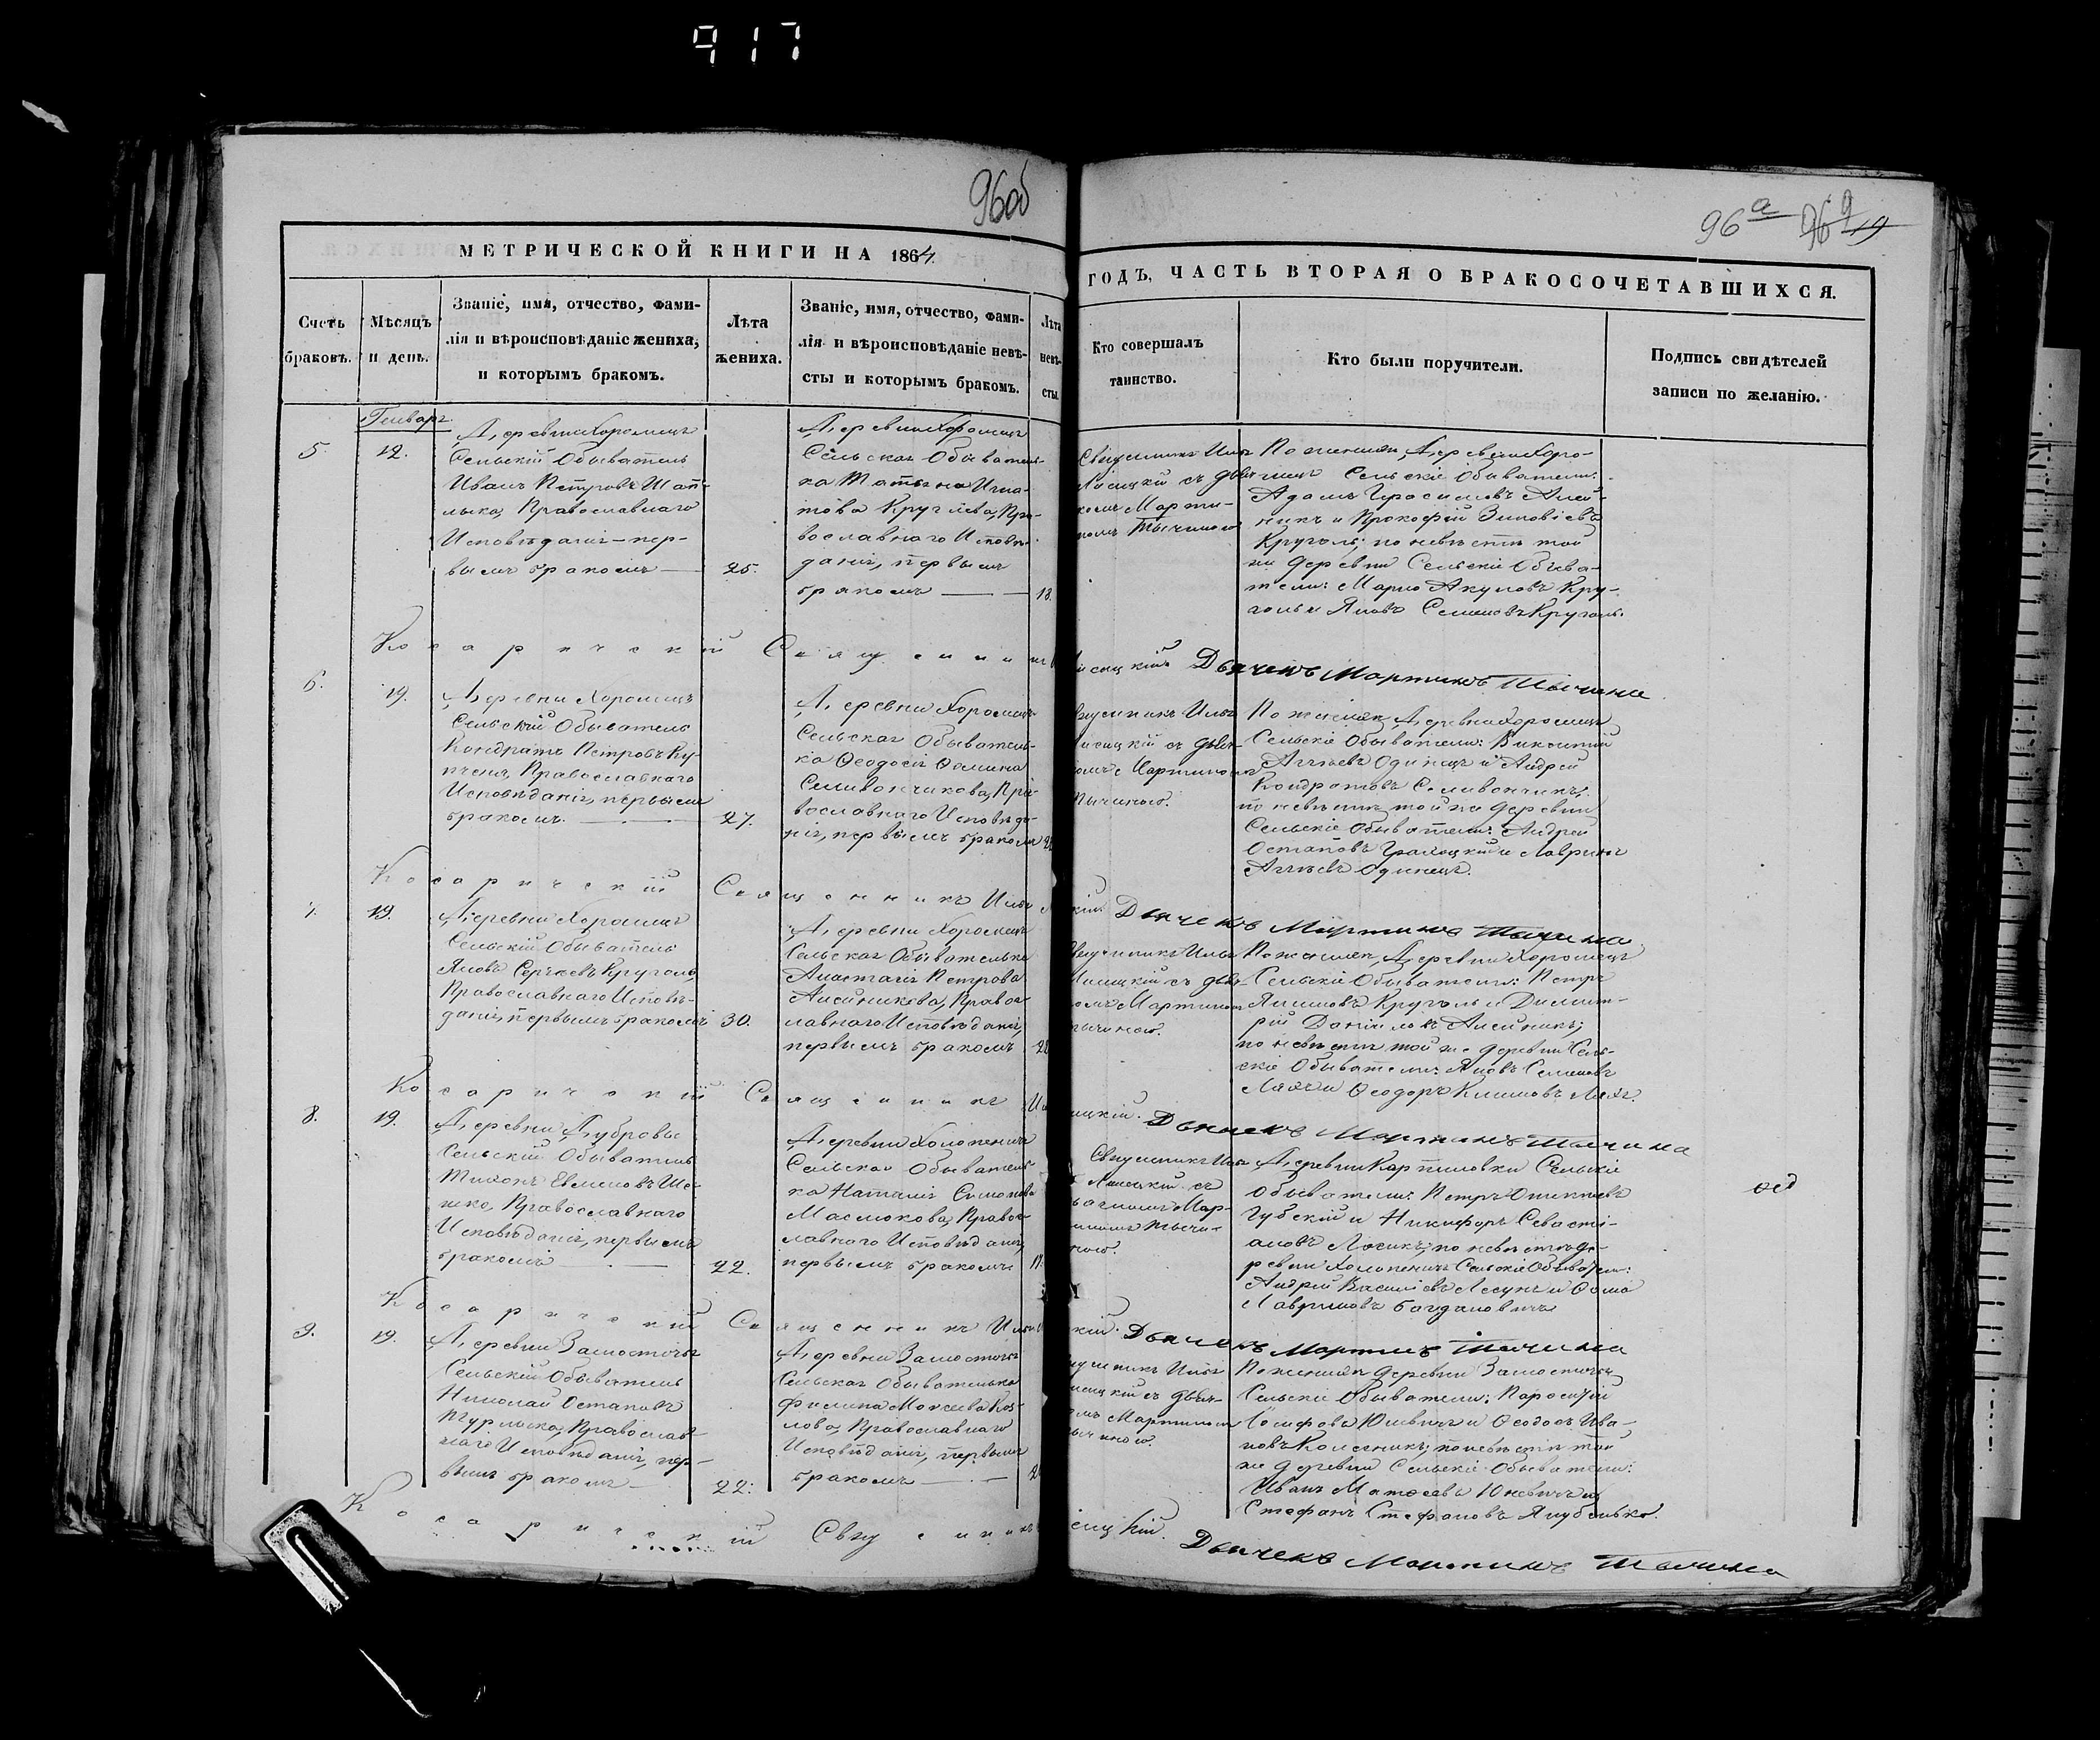 917
96об
96а 96 19
МЕТРИЧЕСКОЙ КНИГИ НА 1864.
ГОДЪ, ЧАСТЬ ВТОРАЯ О БРАКОСОЧЕТАВШИХСЯ.
Счетъ браковъ.
Мѣсяцъ и день.
Званіе, имя, отчество, фами-
лія и вѣроисповѣданіе жениха,
и которымъ бракомъ.
Лѣта
жениха.
Званіе, имя, отчество, фами-
лія и вѣроисповѣданіе невѣ-
сты и которымъ бракомъ.
Лѣта
невѣ-
сты.
Кто совершалъ
таинство.
Кто были поручители.
Подпись свидѣтелей
записи по желанію.
Генварь
5.
12.
Деревни Хоромецъ
Сельскій Обыватель
Иванъ Петровъ
Православнаго
Исповѣданія – пер-
вымъ бракомъ
25.
Деревни Хоромецъ
Сельская Обыватель-
ка Татьяна Игна-
това Круглева, Пра-
вославнаго Исповѣ-
данія, первымъ
бракомъ
18.
Священникъ Илья
Лисицкій съ дьяч-
комъ Марти-
номъ Тычиною
По женихѣ, Деревни Хоро-
мецъ Сельскіе Обыватели:
Адамъ Герасимовъ Алей-
никъ и Прокофій Зиновіевъ
Круголь; по невѣстѣ той
же деревни Сельскіе Обыва-
тели: Марко Акуловъ Кру-
голь и Яковъ Семеновъ Круголь.
Косаричскій Священникъ Лисицкій Дьячекъ Мартинъ Тычина
6.
19.
Деревни Хоромецъ
Сельскій Обыватель
Кондратъ Петровъ Ку-
Православнаго
Исповѣданія, первымъ
бракомъ.
27.
Деревни Хоромецъ
Сельская Обыватель-
ка Ѳеодосія Ѳомина
Селивончикова, Пра-
вославнаго Исповѣда-
нія, первымъ бракомъ
Священникъ Илья
Лисицкій съ дьяч-
комъ Мартиномъ
Тычиною.
По женихѣ, Деревни Хоромецъ
Сельскіе Обыватели: Викентій
Агѣевъ Одинецъ и Андрей
Кондратовъ Селивончикъ;
по невѣстѣ той же деревни
Сельскіе Обыватели: Андрей
Остаповъ и Лавринъ
Агѣевъ Одинецъ.
Косаричскій Священникъ Илья Дьячекъ Мартинъ Тычина
7.
19.
Деревни Хоромецъ
Сельскій Обыватель
Яковъ Сергѣевъ Круголь,
Православнаго Исповѣ-
данія, первымъ бракомъ
30.
Деревни Хоромецъ
Сельская Обывателька
Анастасія Петрова
Алейникова, Правос-
лавнаго Исповѣданія,
первымъ бракомъ
Священникъ Илья
Лисицкій съ дьяч-
комъ Мартиномъ
Тычиною.
По женихѣ, Деревни Хоромецъ
Сельскіе Обыватели: Петръ
Круголь и Димит-
рій Даніиловъ Алейникъ;
по невѣстѣ той же деревни Сель-
скіе Обыватели: Яковъ Семеновъ
и Ѳеодоръ Климовъ
Косаричскій Священникъ Дьячекъ Мартинъ Тычина
8.
19.
Деревни Дубровы
Сельскій Обыватель
Православнаго
Исповѣданія, первымъ
бракомъ
22.
Деревни Холопеничъ
Сельская Обыватель-
ка Наталія Симонова
Маслюкова, Правос-
лавнаго Исповѣданія,
первымъ бракомъ
Священникъ Илья
Лисицкій съ
дьячкомъ Мар-
тиномъ Тычи-
ною.
Деревни Карпиловки Сельскіе
Обыватели: Петръ
Губскій и Никифоръ Севасті-
ановъ Лосикъ; по невѣстѣ де-
ревни Холопеничъ Сельскіе Обыватели:
Андрей Василіевъ и Ѳома
Лавриновъ Богдановичъ
Косаричскій Священникъ Илья Дьячекъ Мартинъ Тычина
9.
19.
Деревни Замосточья
Сельскій Обыватель
Николай Остаповъ
Православ-
наго Исповѣданія, пер-
вымъ бракомъ
22.
Деревни Замосточья
Сельская Обывателька
Филипа Моисеева Коз-
лова, Православнаго
Исповѣданія, первымъ
бракомъ
Священникъ Илья
Лисицкій съ дьяч-
комъ Мартиномъ
Тычиною.
По женихѣ деревни Замосточья
Сельскіе Обыватели:
Іосифовъ Юшевичъ и Ѳеодосъ Ива-
новъ Колесникъ; по невѣстѣ той
же деревни Сельскіе Обыватели:
Иванъ Матѳеевъ Юшевичъ и
Стефанъ Стефановъ Якубенько.
Косаричскій Священникъ Лисицкій. Дьячекъ Мартинъ Тычина